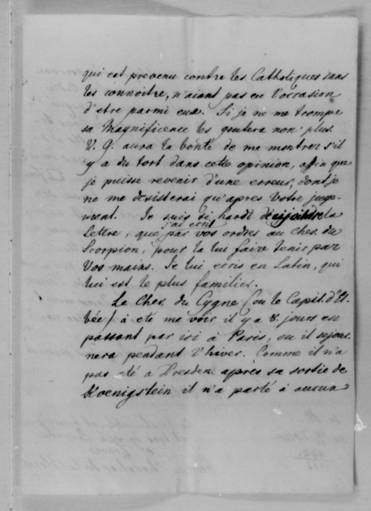 qui est prevenu contre les Catholiques sans
les connoitre, n'aiant pas eu l'occasion
d'etre parmi eux. Si je ne me trompe
sa Magnificence les goutera non plus.
V. G. aura la bonté de me montrer s'il
y a du tort dans cette opinion, afin que
je puisse revenir d'une erreur, dont je
ne me desisterai qu'apres Votre juge-
ment. Je suis si hardi d'ajoindre la
Lettre, que j'ai ecrit par vos ordres au Chev. du
Scorpion, pour la lui faire tenir par
Vos mains. Je lui ecris en Latin, qui
lui est le plus familier.
Le Chev. du Cygne (ou le Capit. d'
) à eté me voir il y a 8. jours en
passant par ici à Paris, ou il sejour-
nera pendant l'hiver. Comme il n'a
pas eté a Dresden apres sa sortie de
Koenigstein il n'a parlé à aucun